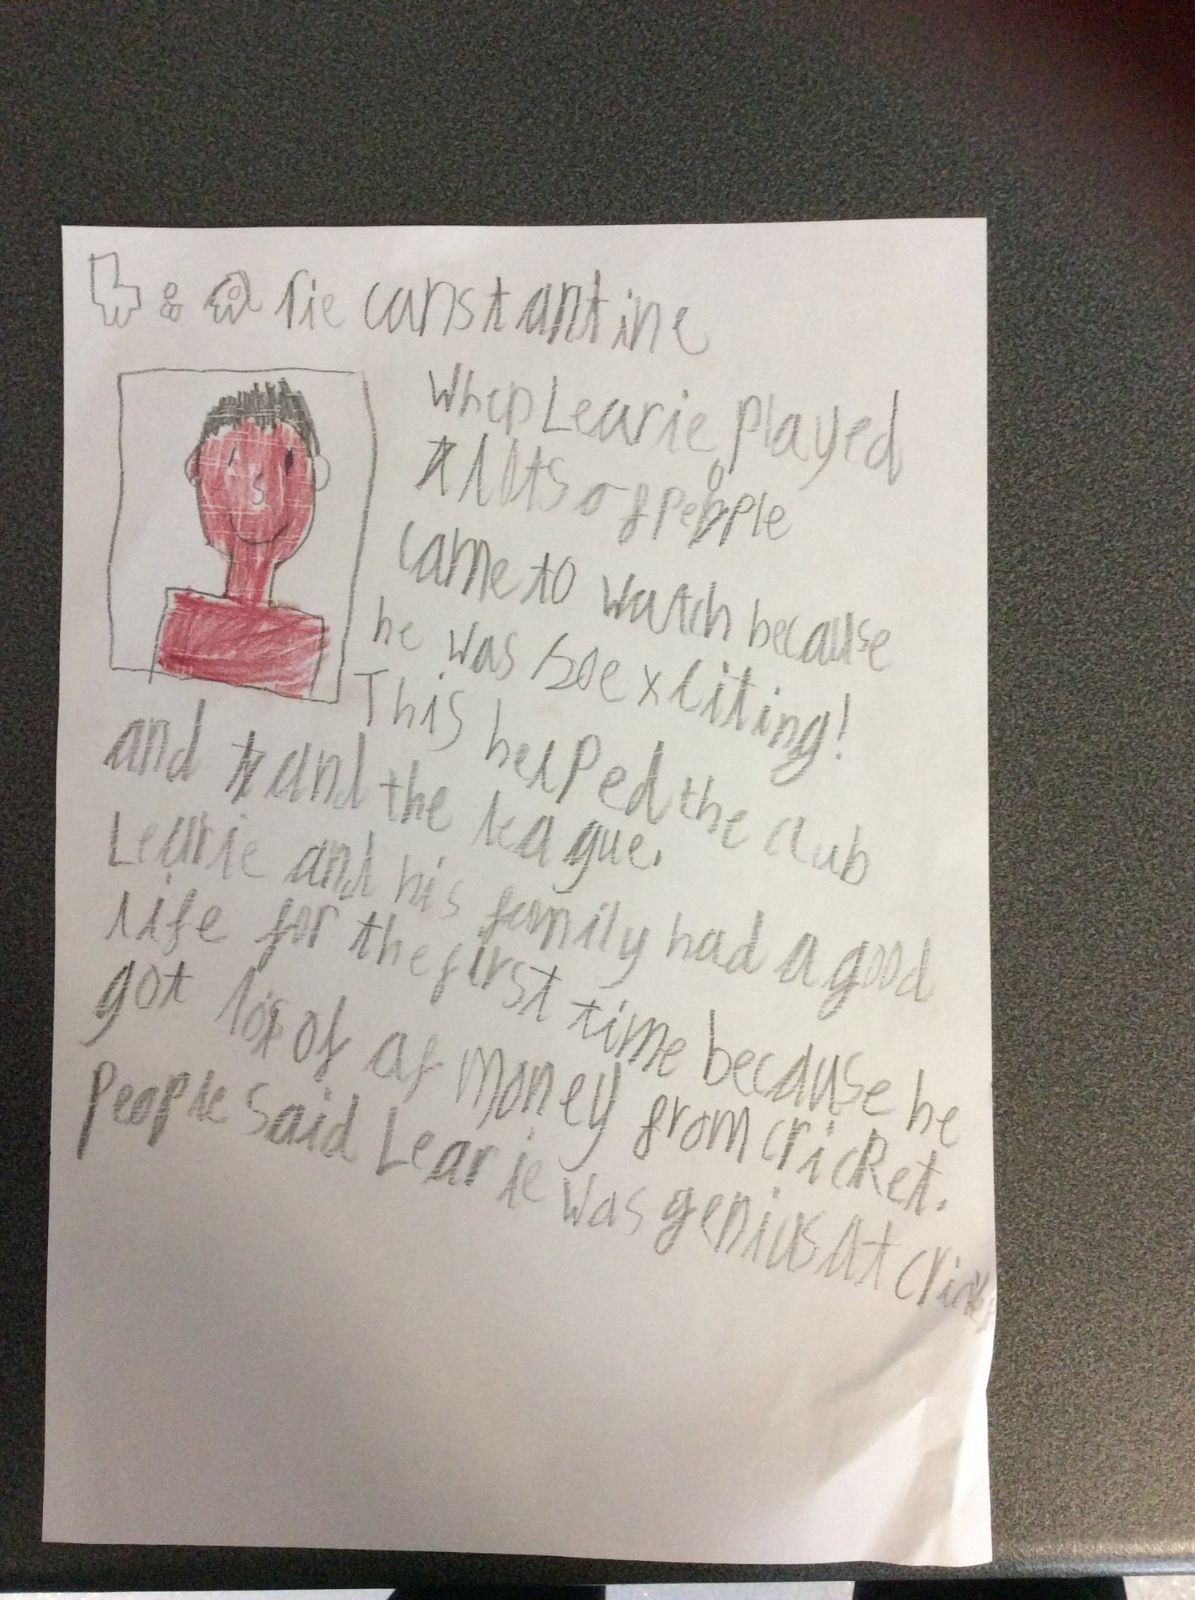 Learie constantine
When Learie played
lots of people
came to watch because
he was so exciting!
This helped the club
and and the league.
Learie and his family had a good
life for the first time because he
got lots of of money from cricket.
People said Learie was genius at